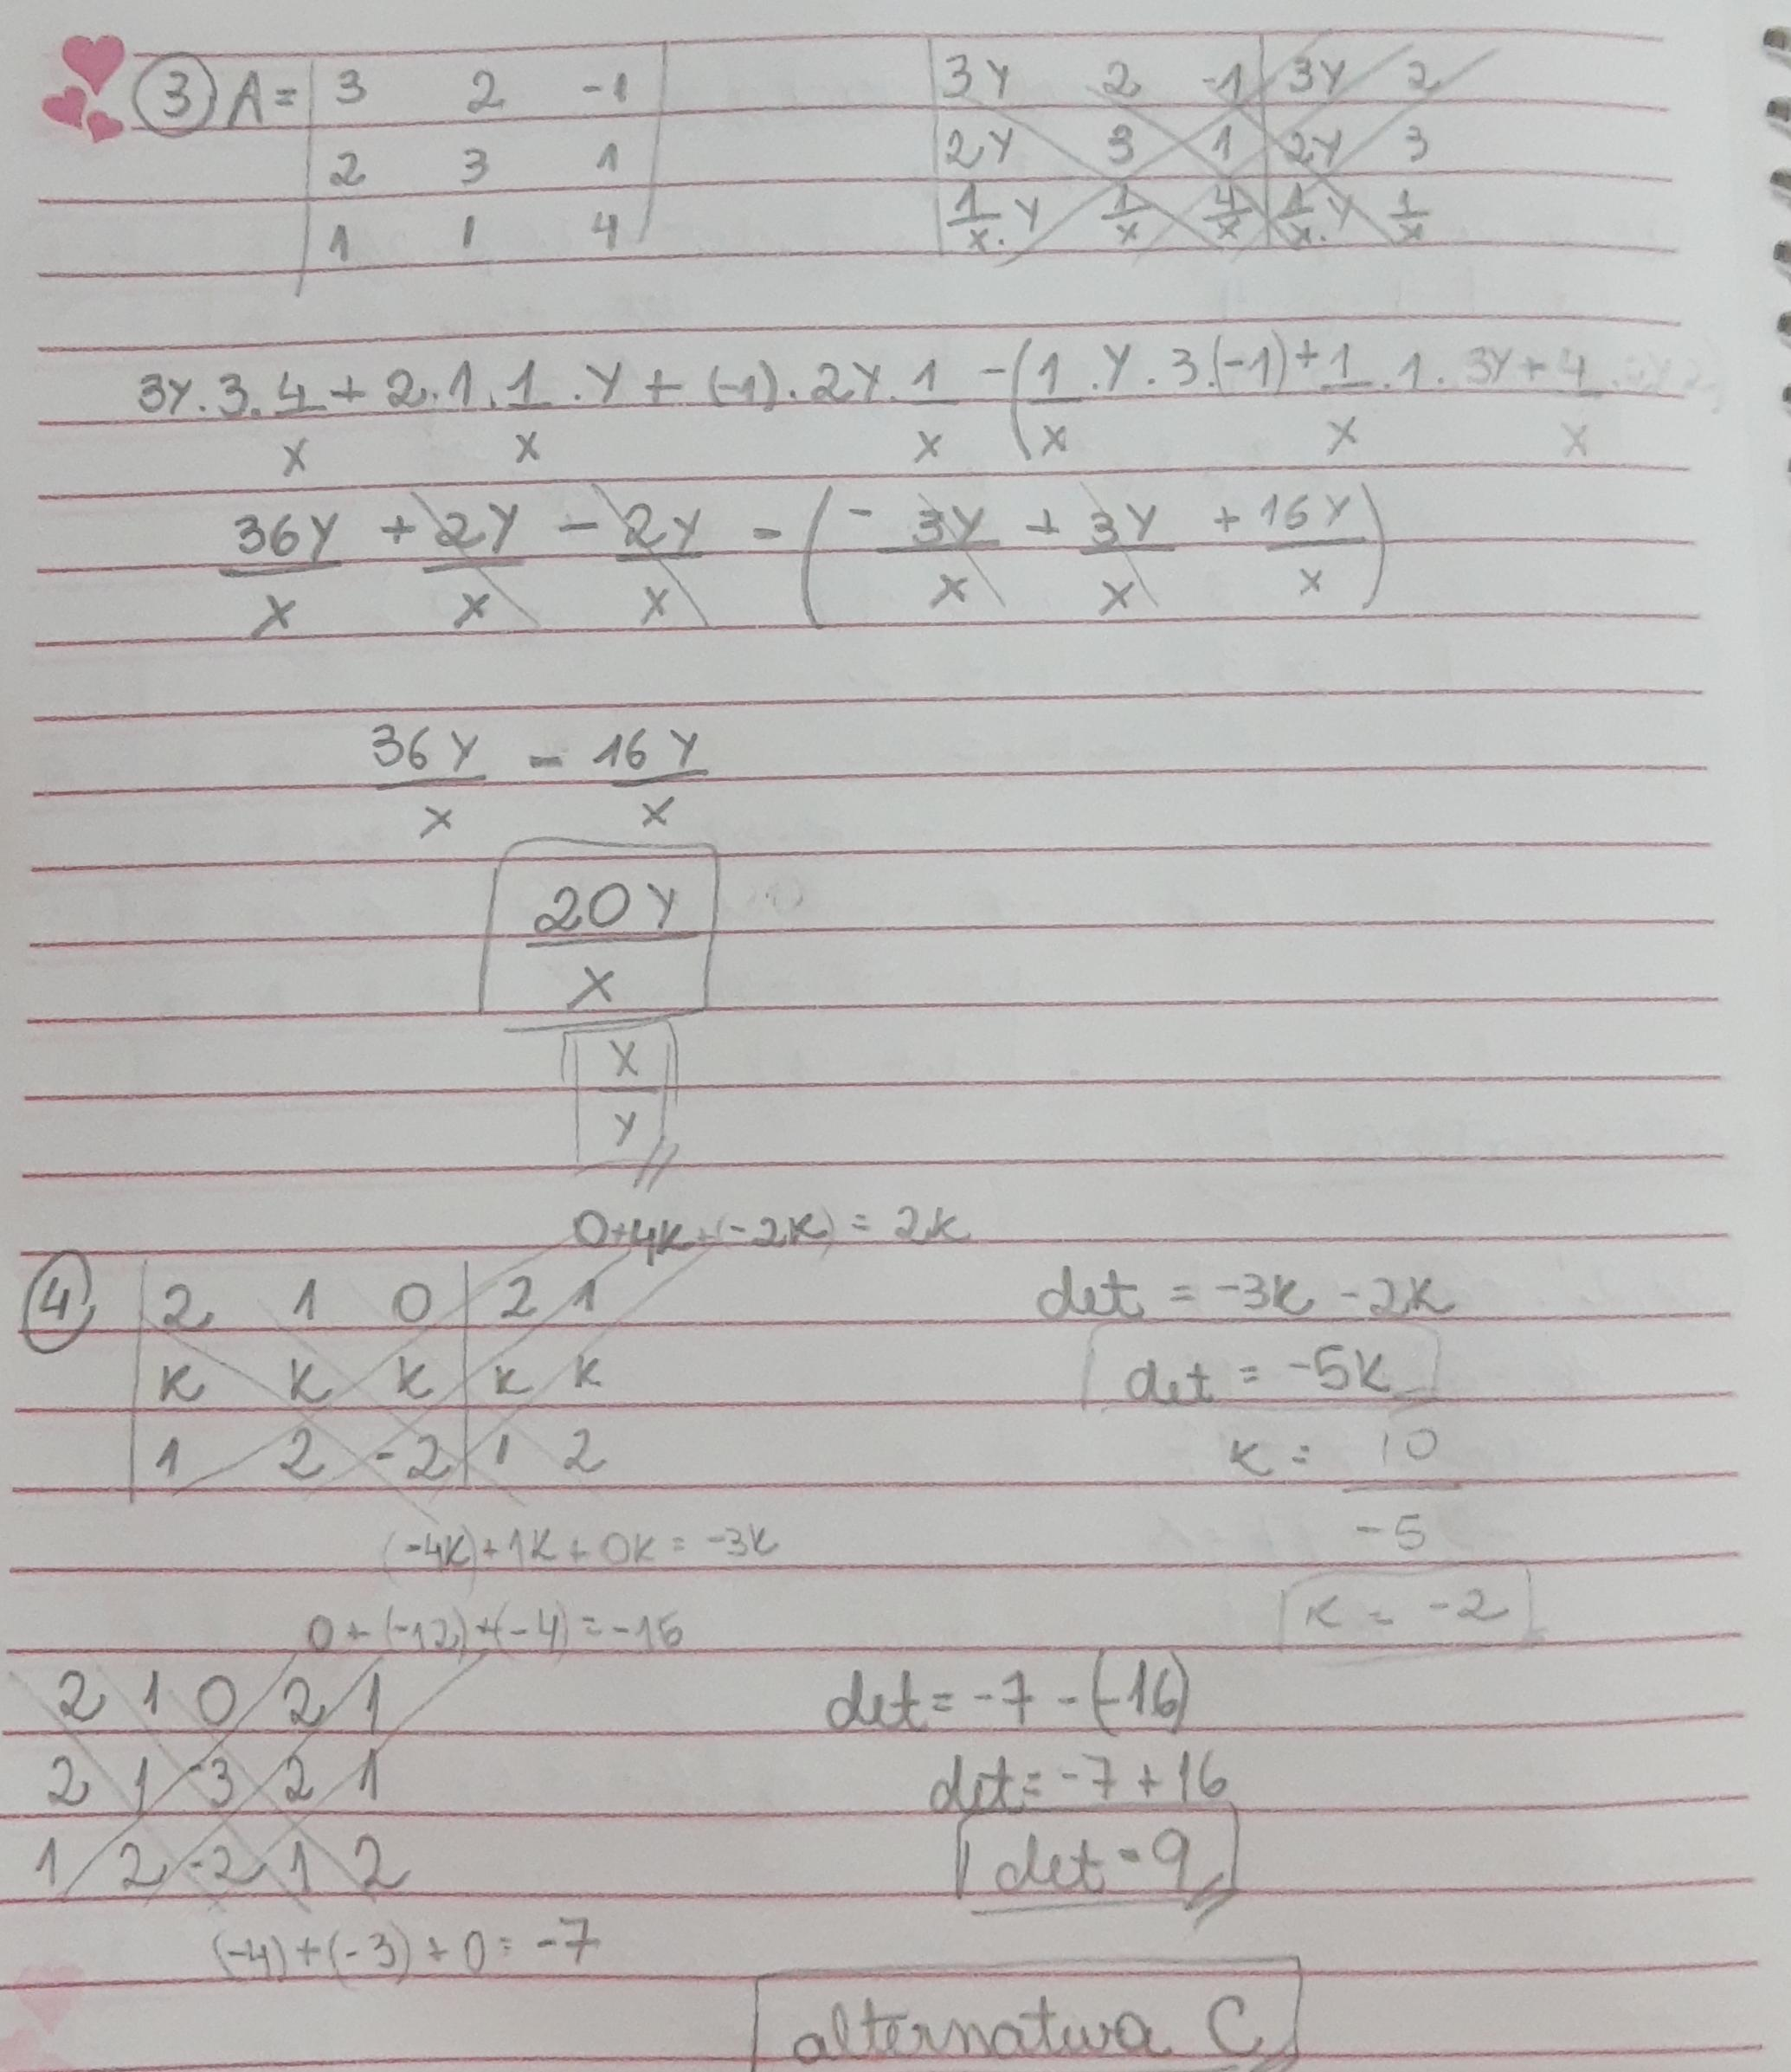 3 A = | 3 2 -1 |
2 3 1
1 1 4
3Y 2 -1 | 3Y 2
2Y 3 1 | 2Y 3
1/x.Y 1/x 4/x | 1/x.Y 1/x
3Y.3.4/x + 2.1.1/x.Y + (-1).2Y.1/x - (1/x.Y.3.(-1) + 1/x.1.3Y + 4/x
36Y/x + 2Y/x - 2Y/x - (-3Y/x + 3Y/x + 16Y/x)
36Y/x - 16Y/x
20Y/x
x/Y
0+4K+(-2K) = 2K
4) 2 1 0 | 2 1
K K K | K K
1 2 -2 | 1 2
(-4K)+1K+0K = -3K
det = -3K - 2K
det = -5K
K = 10/-5
K = -2
0+(-12)+(-4) = -16
2 1 0 2 1
2 1 -3 2 1
1 2 -2 1 2
(-4)+(-3)+0 = -7
det = -7 - (-16)
det = -7 + 16
det = 9
alternativa C